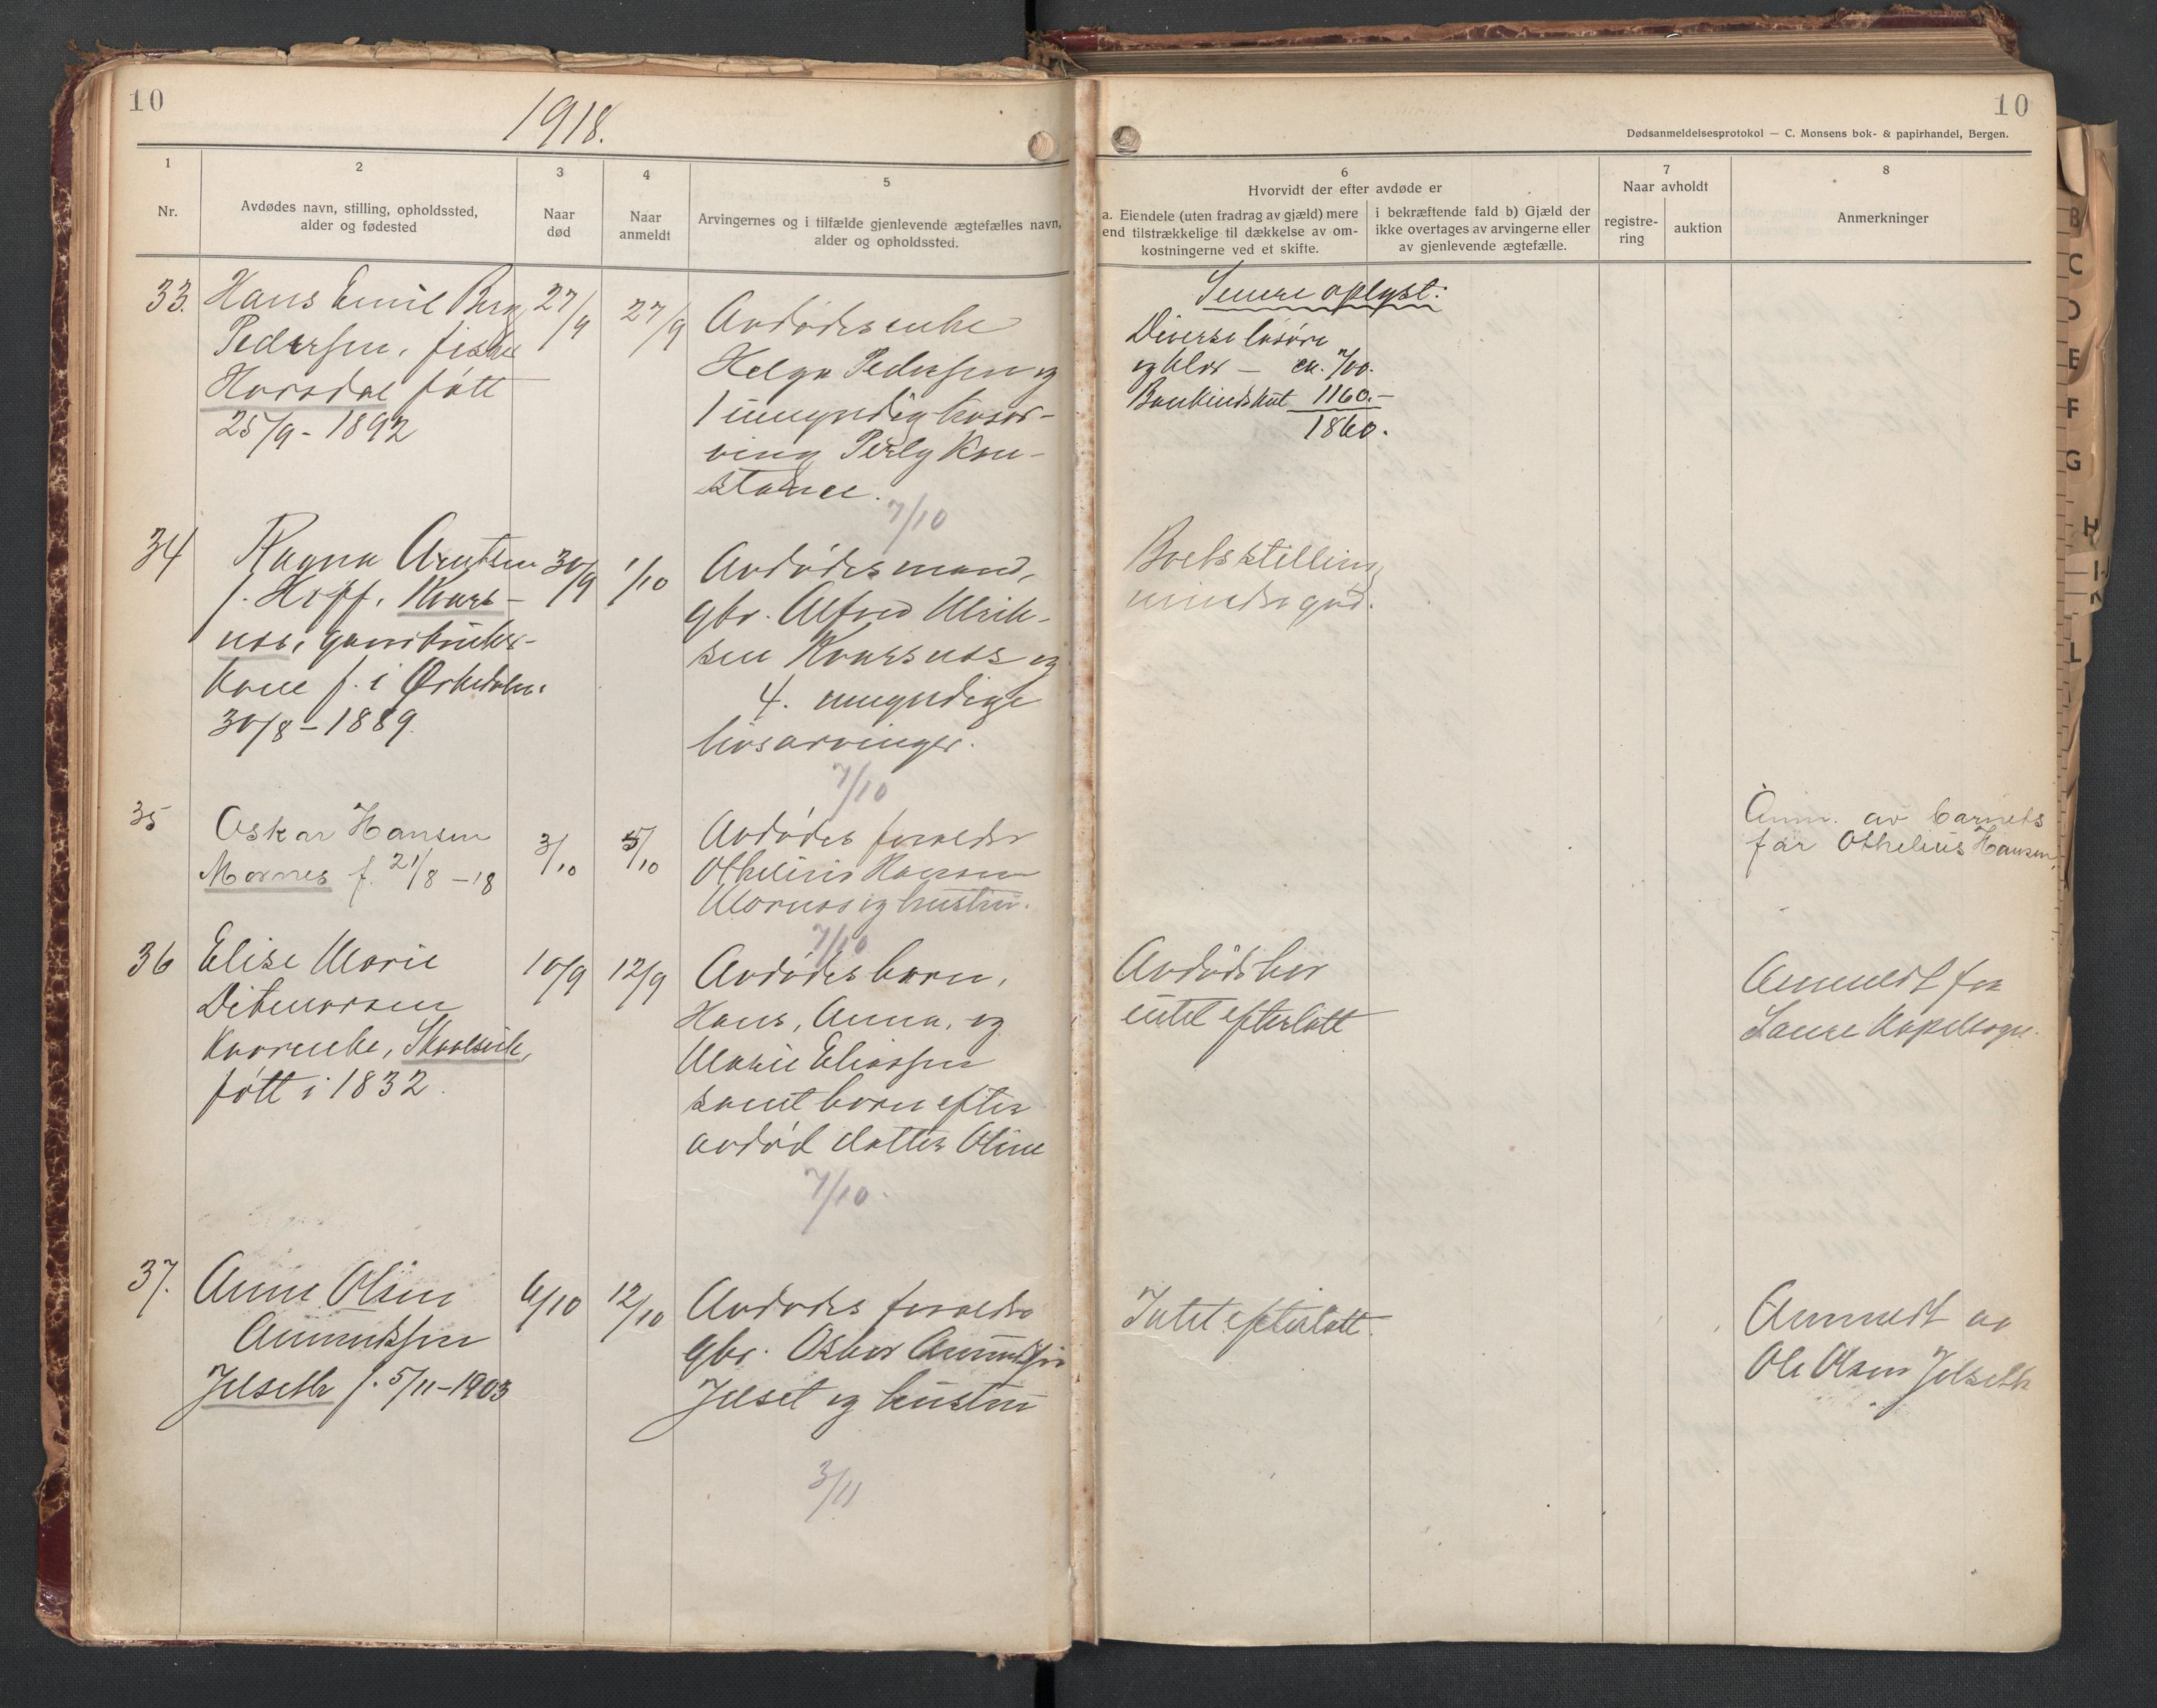 10
1918.
1
2
3
4
5
Nr.
Avdødes navn, stilling, opholdssted,
alder og fødested
Naar
død
Naar
anmeldt
Arvingernes og i tilfælde gjenlevende ægtefælles navn,
alder og opholdssted.
33.
Hans Emil Berg
Pedersen, fisker
Horsdal født
25/9 - 1892
27/9
27/9
Avdødes enke
Helga Pedersen og
1 umyndig livsar-
ving Perly Kon-
stance.
7/10
34
Ragna Arntsen
f. Hoff, Kvars-
nes, gaardbruker-
kone f. i Ørkedalen
30/8 - 1889.
30/9
1/10
Avdødes mand,
gbr. Alfred Ulrik-
sen Kvarsnes og
4. umyndige
livsarvinger.
7/10
35
Oskar Hansen
Mornes f. 21/8 - 18
3/10
5/10
Avdødes forældre
Othelius Hansen
Mornes og hustru.
7/10
36
Elise Marie
Ditmarsen
Kaarenke,
født i 1832.
10/9
12/9
Avdødes barn,
Hans, Anna, og
Marie Eliassen
samt barn efter
avdød datter Oline
7/10.
37.
Anne Olsen
Amundsen
Jelseth f. 5/11 - 1903
6/10
12/10
Avdødes forældre
gbr. Oskar Amundsen
Jelset og hustru
3/11
10
Dødsanmeldelsesprotokol — C. Monsens bok- & papirhandel, Bergen.
6
Hvorvidt der efter avdøde er
a. Eiendele (uten fradrag av gjæld) mere
end tilstrækkelige til dækkelse av om-
kostningerne ved et skifte.
i bekræftende fald b) Gjæld der
ikke overtages av arvingerne eller
av gjenlevende ægtefælle.
7
Naar avholdt
registre-
ring
auktion
8
Anmerkninger
Senere oplyst:
Diverse løsøre
og klær — ca. 700.
Bankindskut 1160.-
1860.
Boets stilling
mindre god.
Anm. av barnets
far Othelius Hansen
Avdøde har
intet efterlatt
Anmeldt fra
Kapelsogn.
Intet efterlatt.
Anmeldt av
Ole Olsen Jelseth
B
C
D
E
F
G
H
I
K
L